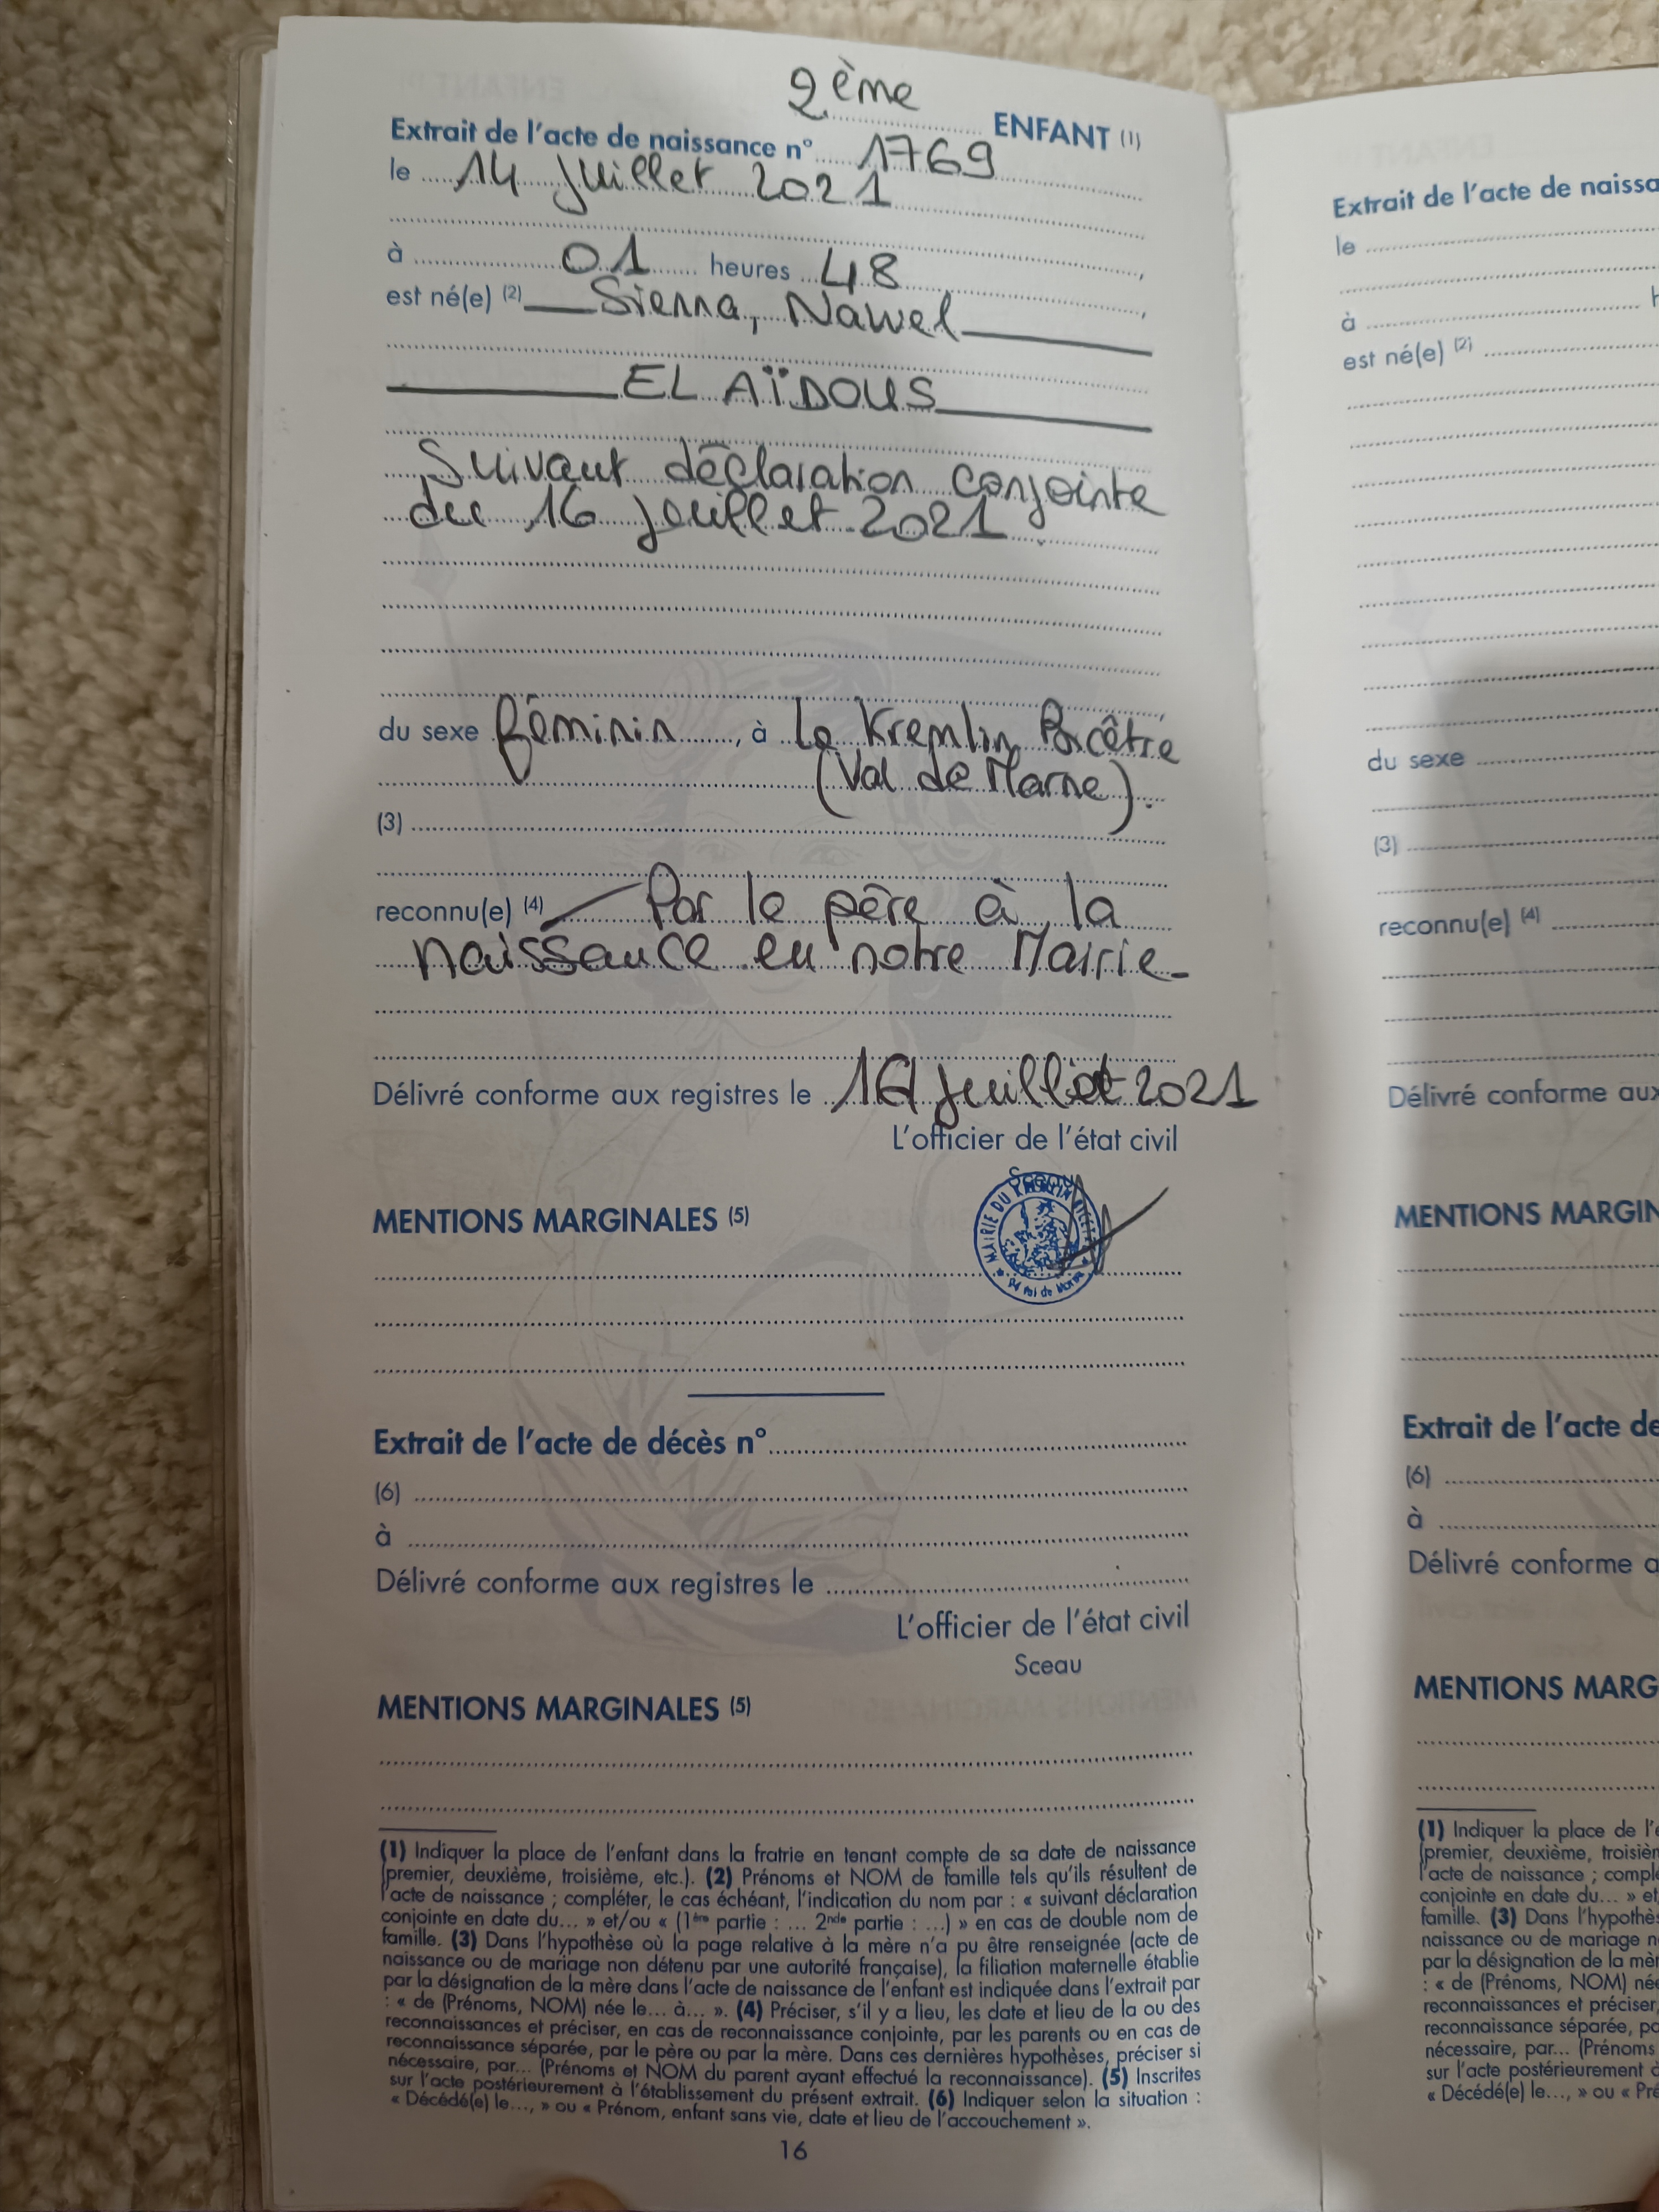 2ème ENFANT (1)
Extrait de l'acte de naissance n° 1769
le 14 juillet 2021
à 01 heures 48
est né(e) (2) Sienna, Nawel
EL AÏDOUS
Suivant déclaration conjointe
du 16 juillet 2021
du sexe féminin, à Le Kremlin Bicêtre
(Val de Marne).
(3)
reconnu(e) (4) Par le père à la
naissance en notre Mairie
Délivré conforme aux registres le 16 juillet 2021
L'officier de l'état civil
Sceau
MAIRIE DU KREMLIN
MENTIONS MARGINALES (5)
Extrait de l'acte de décès n°
(6)
à
Délivré conforme aux registres le
L'officier de l'état civil
Sceau
MENTIONS MARGINALES (5)
(1) Indiquer la place de l'enfant dans la fratrie en tenant compte de sa date de naissance
(premier, deuxième, troisième, etc.). (2) Prénoms et NOM de famille tels qu'ils résultent de
l'acte de naissance ; compléter, le cas échéant, l'indication du nom par : « suivant déclaration
conjointe en date du... » et/ou « (1ère partie : ... 2nde partie : ...) » en cas de double nom de
famille. (3) Dans l'hypothèse où la page relative à la mère n'a pu être renseignée (acte de
naissance ou de mariage non détenu par une autorité française), la filiation maternelle établie
par la désignation de la mère dans l'acte de naissance de l'enfant est indiquée dans l'extrait par
: « de (Prénoms, NOM) née le... à... ». (4) Préciser, s'il y a lieu, les date et lieu de la ou des
reconnaissances et préciser, en cas de reconnaissance conjointe, par les parents ou en cas de
reconnaissance séparée, par le père ou par la mère. Dans ces dernières hypothèses, préciser si
nécessaire, par... (Prénoms et NOM du parent ayant effectué la reconnaissance). (5) Inscrites
sur l'acte postérieurement à l'établissement du présent extrait. (6) Indiquer selon la situation :
« Décédé(e) le..., » ou « Prénom, enfant sans vie, date et lieu de l'accouchement ».
16
Extrait de l'acte de naissa
le
à
est né(e) (2)
du sexe
(3)
reconnu(e) (4)
Délivré conforme aux
MENTIONS MARGIN
Extrait de l'acte de
(6)
à
Délivré conforme a
MENTIONS MARG
(1) Indiquer la place de l'e
(premier, deuxième, troisièm
l'acte de naissance ; complé
conjointe en date du... » et
famille. (3) Dans l'hypothès
naissance ou de mariage n
par la désignation de la mèr
: « de (Prénoms, NOM) née
reconnaissances et préciser,
reconnaissance séparée, pa
nécessaire, par... (Prénoms
sur l'acte postérieurement à
« Décédé(e) le..., » ou « Pré